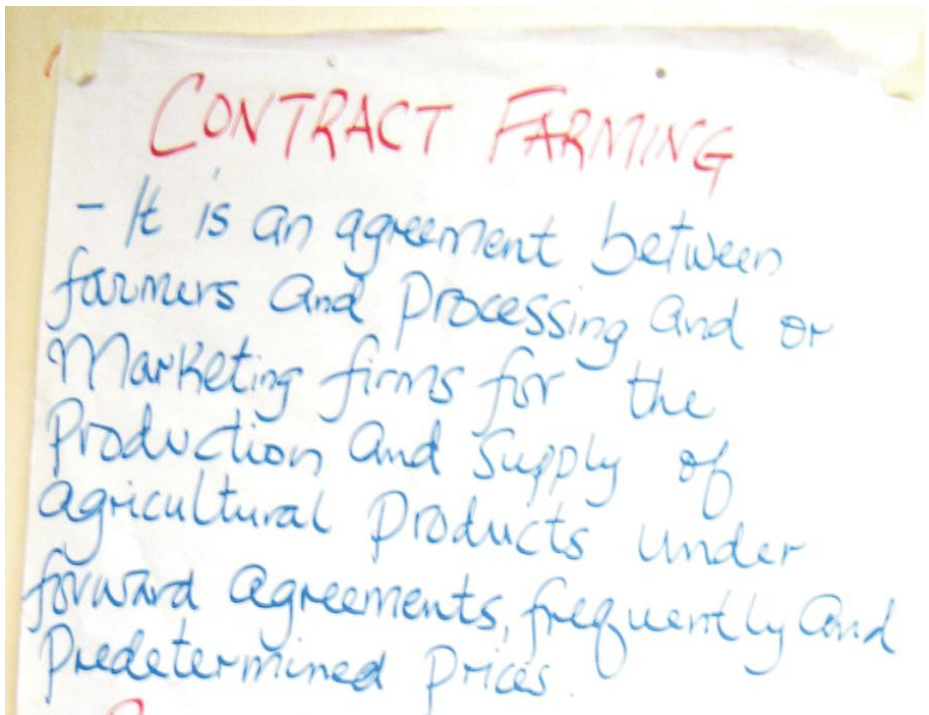 CONTRACT FARMING
- It is an agreement between
farmers and processing and or
Marketing firms for the
Production and Supply of
agricultural products under
forward agreements, frequently and
Predetermined prices.